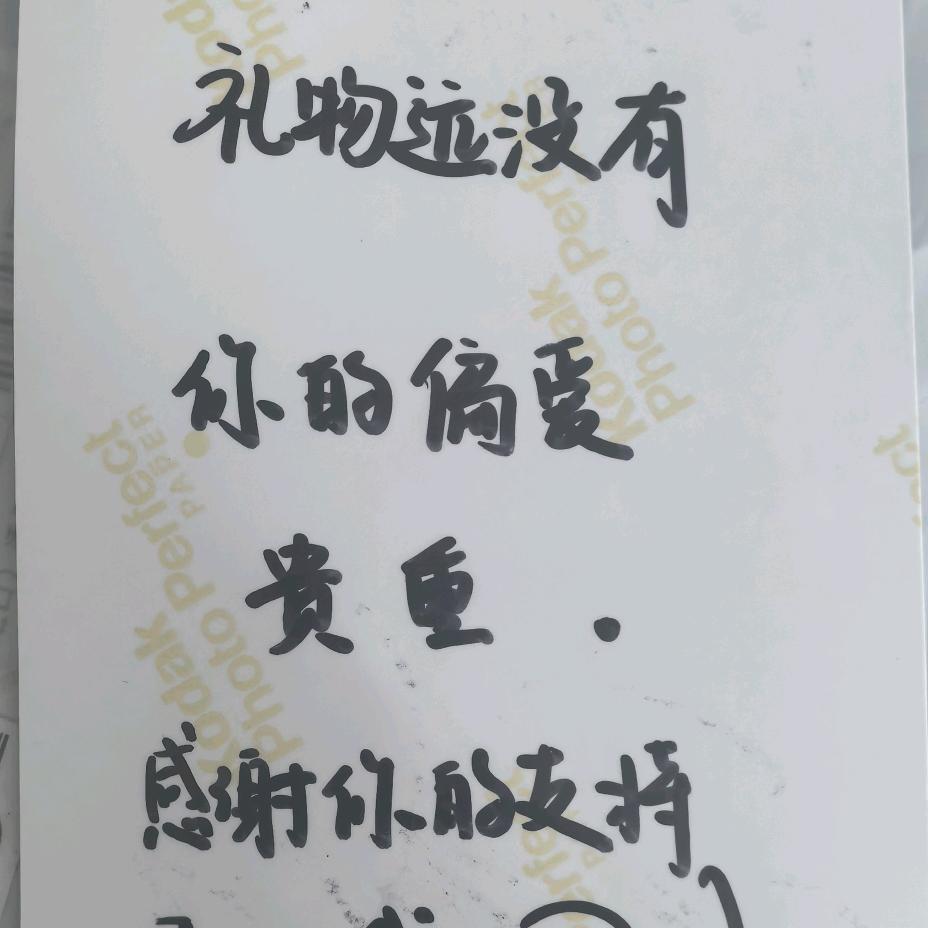 礼物远没有
你的偏爱
贵重.
感谢你的支持
Kodak
Photo Perfect
Kodak
Photo Perfect
PAPER
Kodak
Photo Perfect